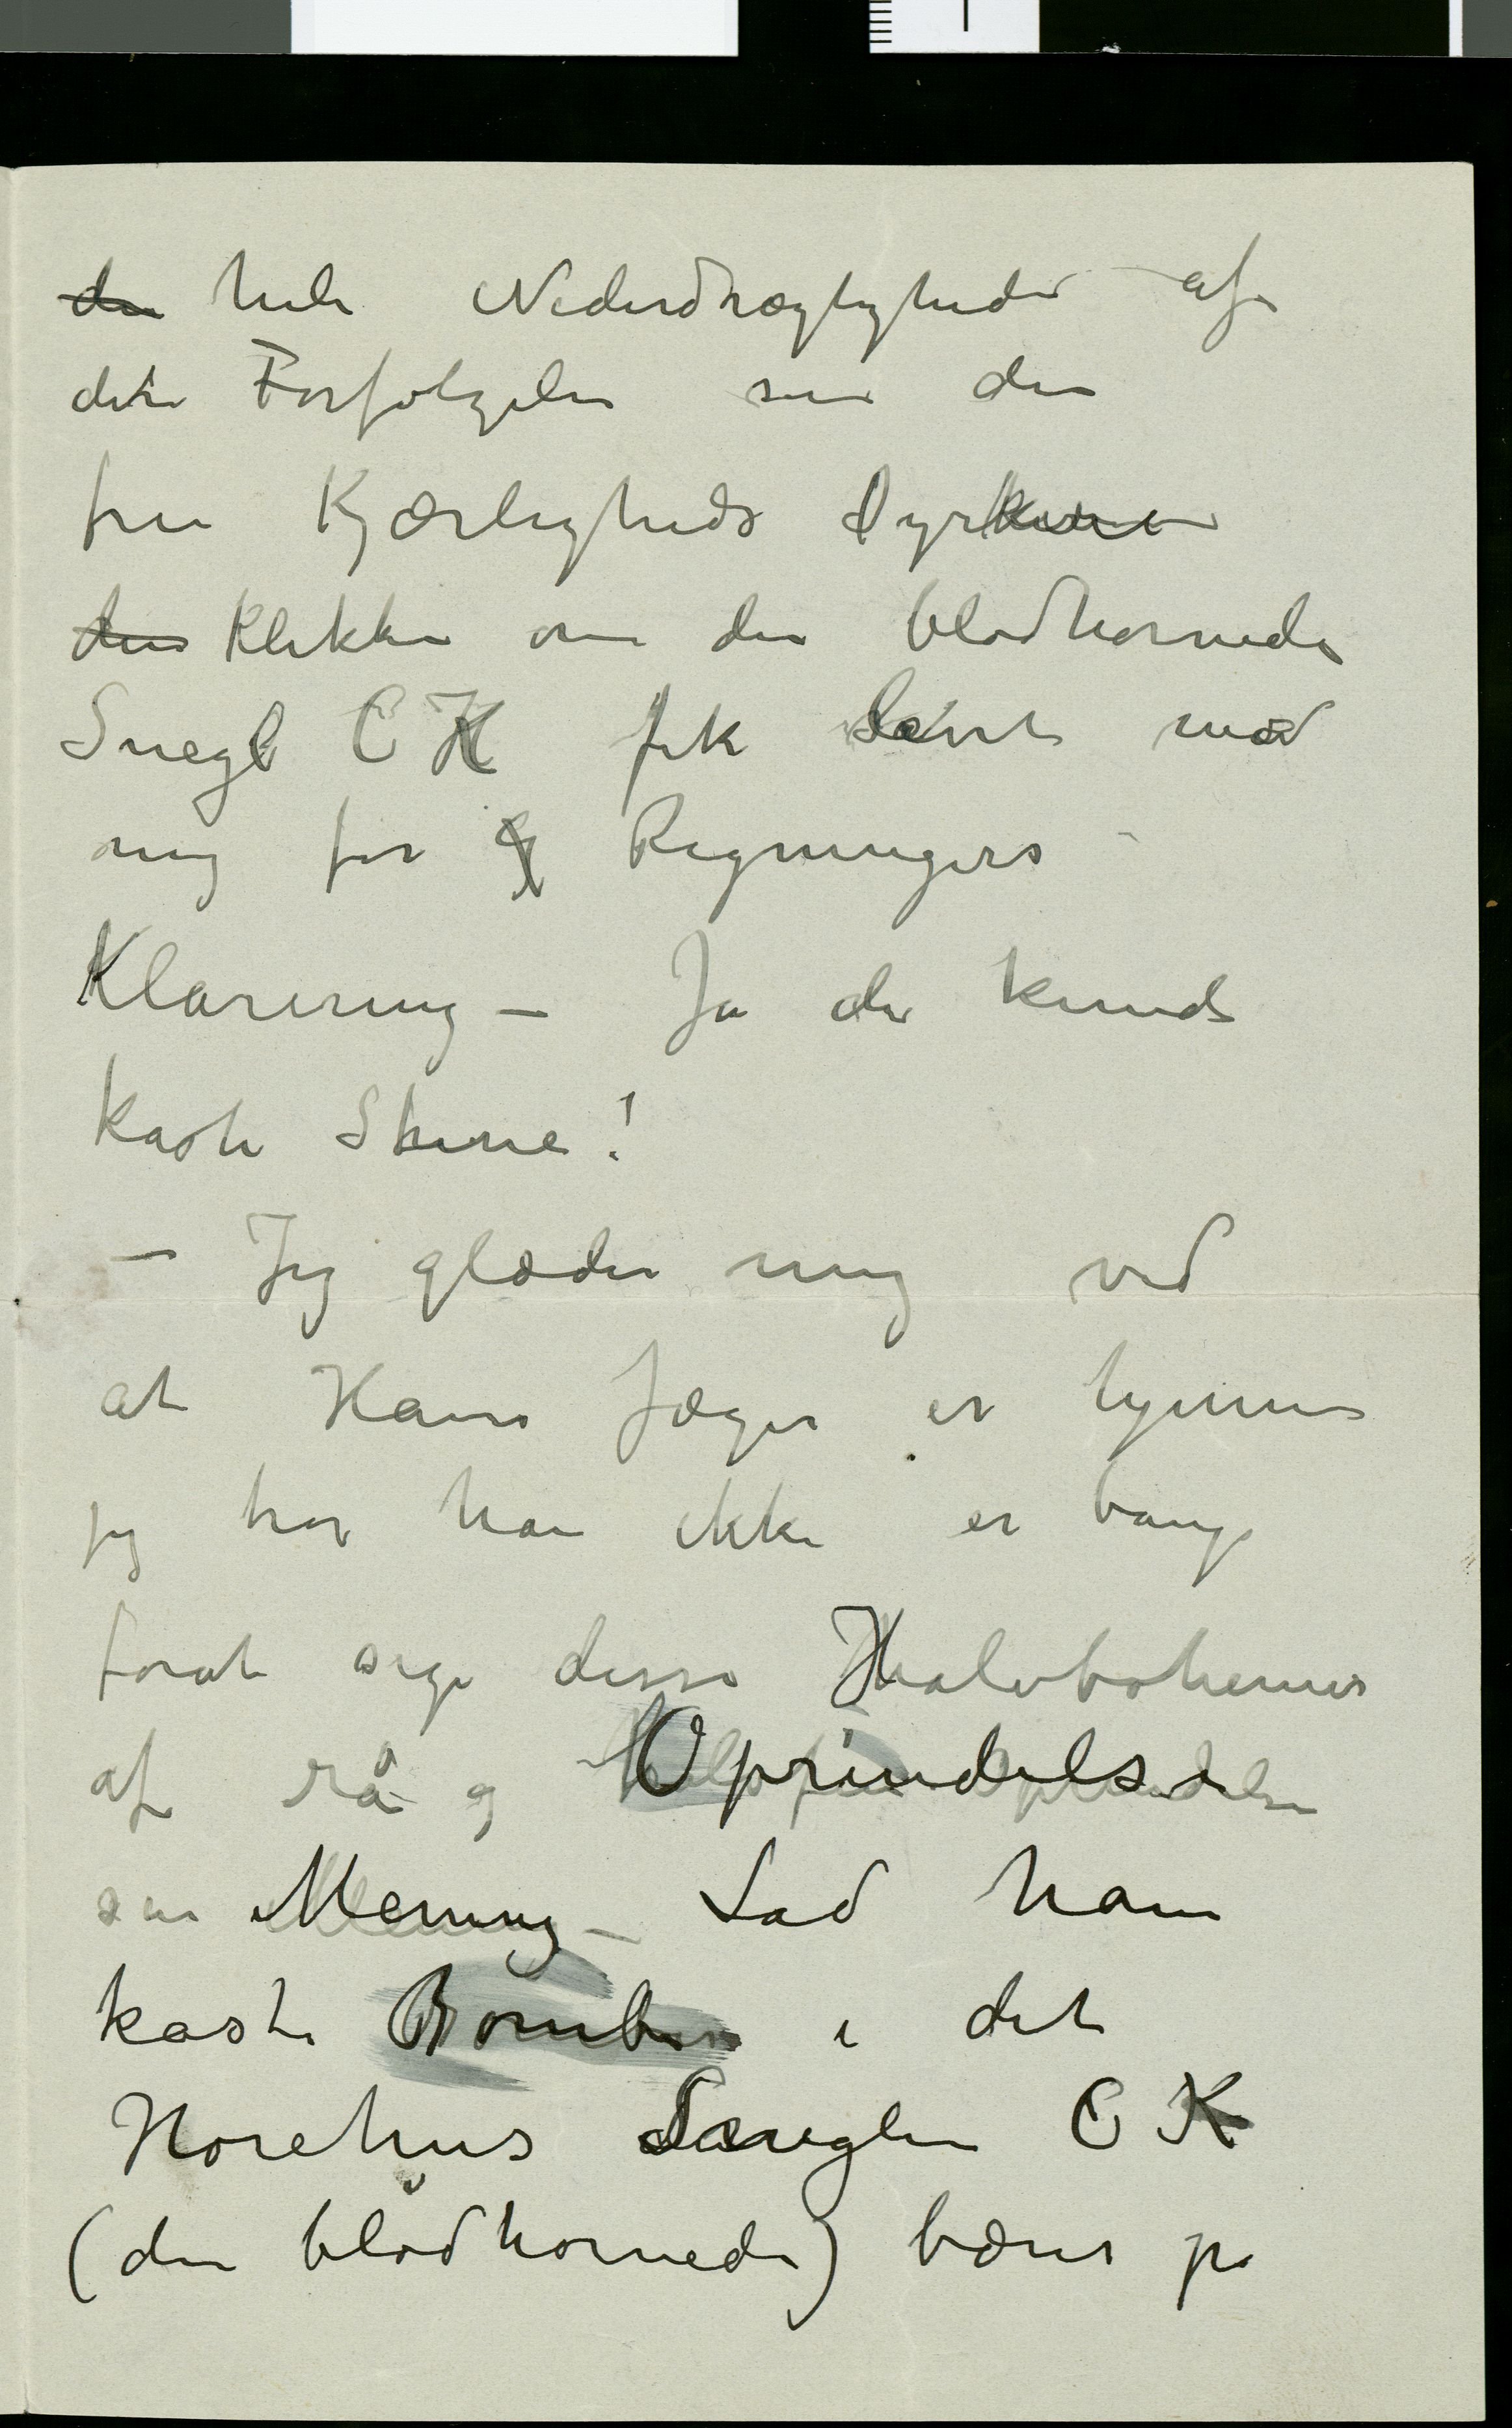 den hele Nederdrægtigheden af
dette Forfølgelse som den
frie Kjærligheds Dyrkere
den Klikken om den blødhornede
Snegl C K fik lavet mod
mig for Regningers
Klarering – Ja de kunde
kaste Stene!
– Jeg glæder mig ved
at Hans Jæger er hjemme
jeg tror han ikke er bange
forat sige disse Halvbohemer
af rå og Oprindelse
sin Mening – Lad ham
kaste Bomben i det
Horehus Sneglen C K
(den blødhornede) bærer på